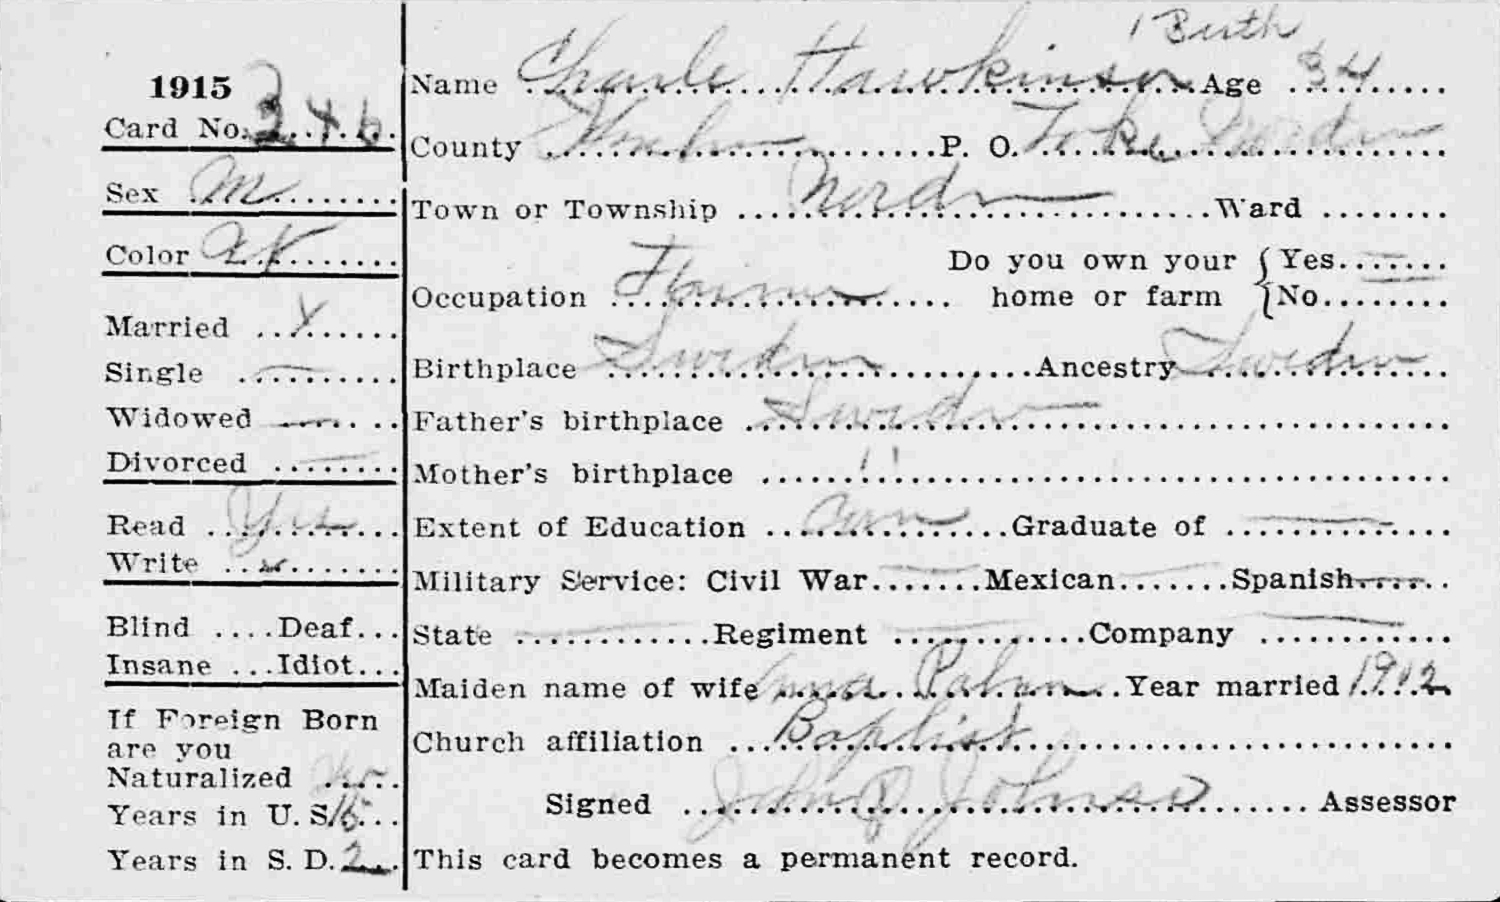 1915
Card No. 246
Sex M
Color W
Married X
Single —
Widowed —
Divorced —
Read Yes
Write "
Blind .... Deaf...
Insane ... Idiot...
If Foreign Born
are you
Naturalized
Years in U. S. 15
Years in S. D. 2
Birth
Name Charle Hawkinson Age 34
County P. O. Lake Norden
Town or Township Norden Ward
Occupation Farmer Do you own your home or farm { Yes — No
Birthplace Sweden Ancestry Sweden
Father's birthplace Sweden
Mother's birthplace "
Extent of Education Com Graduate of —
Military Service: Civil War — Mexican — Spanish —
State — Regiment — Company —
Maiden name of wife Anna Year married 1912
Church affiliation Baptist
Signed John Johnson Assessor
This card becomes a permanent record.